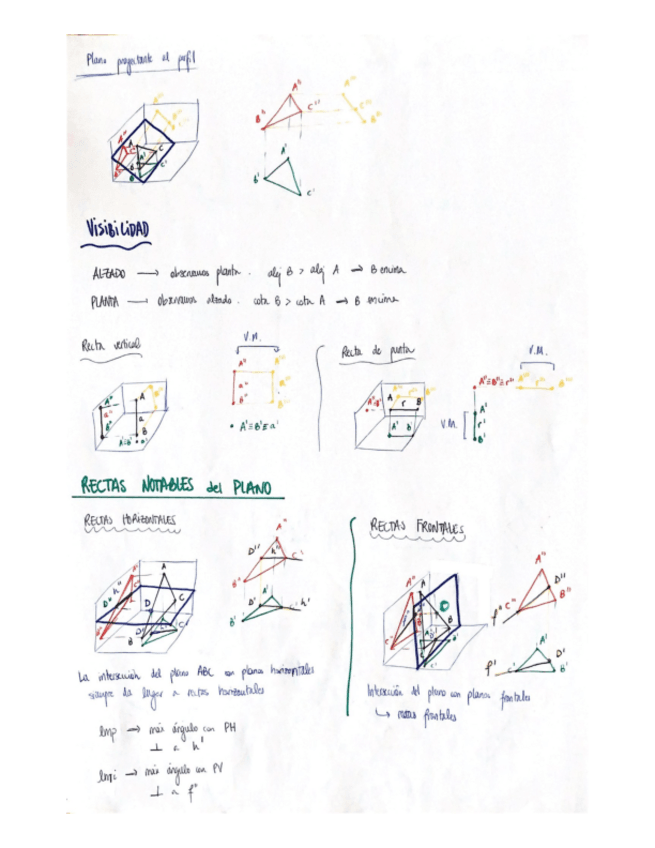 Plano proyectante al perfil
A'''
B'''
A''
B''
C''
A'''
C'''
B'''
A'
B'
C'
VISIBILIDAD
ALZADO → observamos planta. alej B > alej A → B encima
PLANTA → observamos alzado. cota B > cota A → B encima
Recta vertical
V.M.
A''
a''
B''
A'''
a'''
B'''
A'≡B'≡a'
A
a
B
Recta de punta
V.M.
A''≡B''≡r''
A'''
r'''
B'''
V.M.
A'
r'
B'
A
r
B
RECTAS NOTABLES del PLANO
RECTAS HORIZONTALES
A''
D''
h''
C''
B''
D'
A'
h'
B'
A
C
D
B
La intersección del plano ABC con planos horizontales
siempre da lugar a rectas horizontales
lmp → más ángulo con PH
⊥ a h'
lmi → más ángulo con PV
⊥ a f''
RECTAS FRONTALES
A''
D''
f''
C''
B''
A'
D'
f'
C'
B'
Intersección del plano con planos frontales
↳ rectas frontales